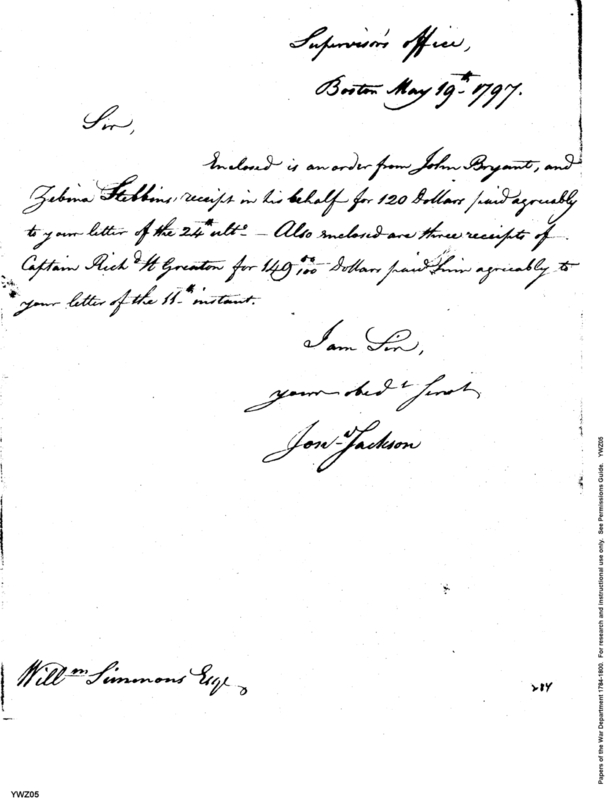 Supervisor's office,
Boston May 19th 1797.
Sir,
Enclosed is an order from John Bryant, and
Zebina Stebbins, receipt in his behalf for 120 Dollars paid agreeably
to your letter of the 24th ulto. - Also enclosed are three receipts of
Captain Richd H Greaton for 149 Dollars paid him agreeably to
your letter of the 11th instant.
I am Sir,
your obedt Servt
Jona Jackson
Willm Simmons Esqr
284
YWZ05
Papers of the War Department 1784-1800. For research and instructional use only. See Permissions Guide. YWZ05